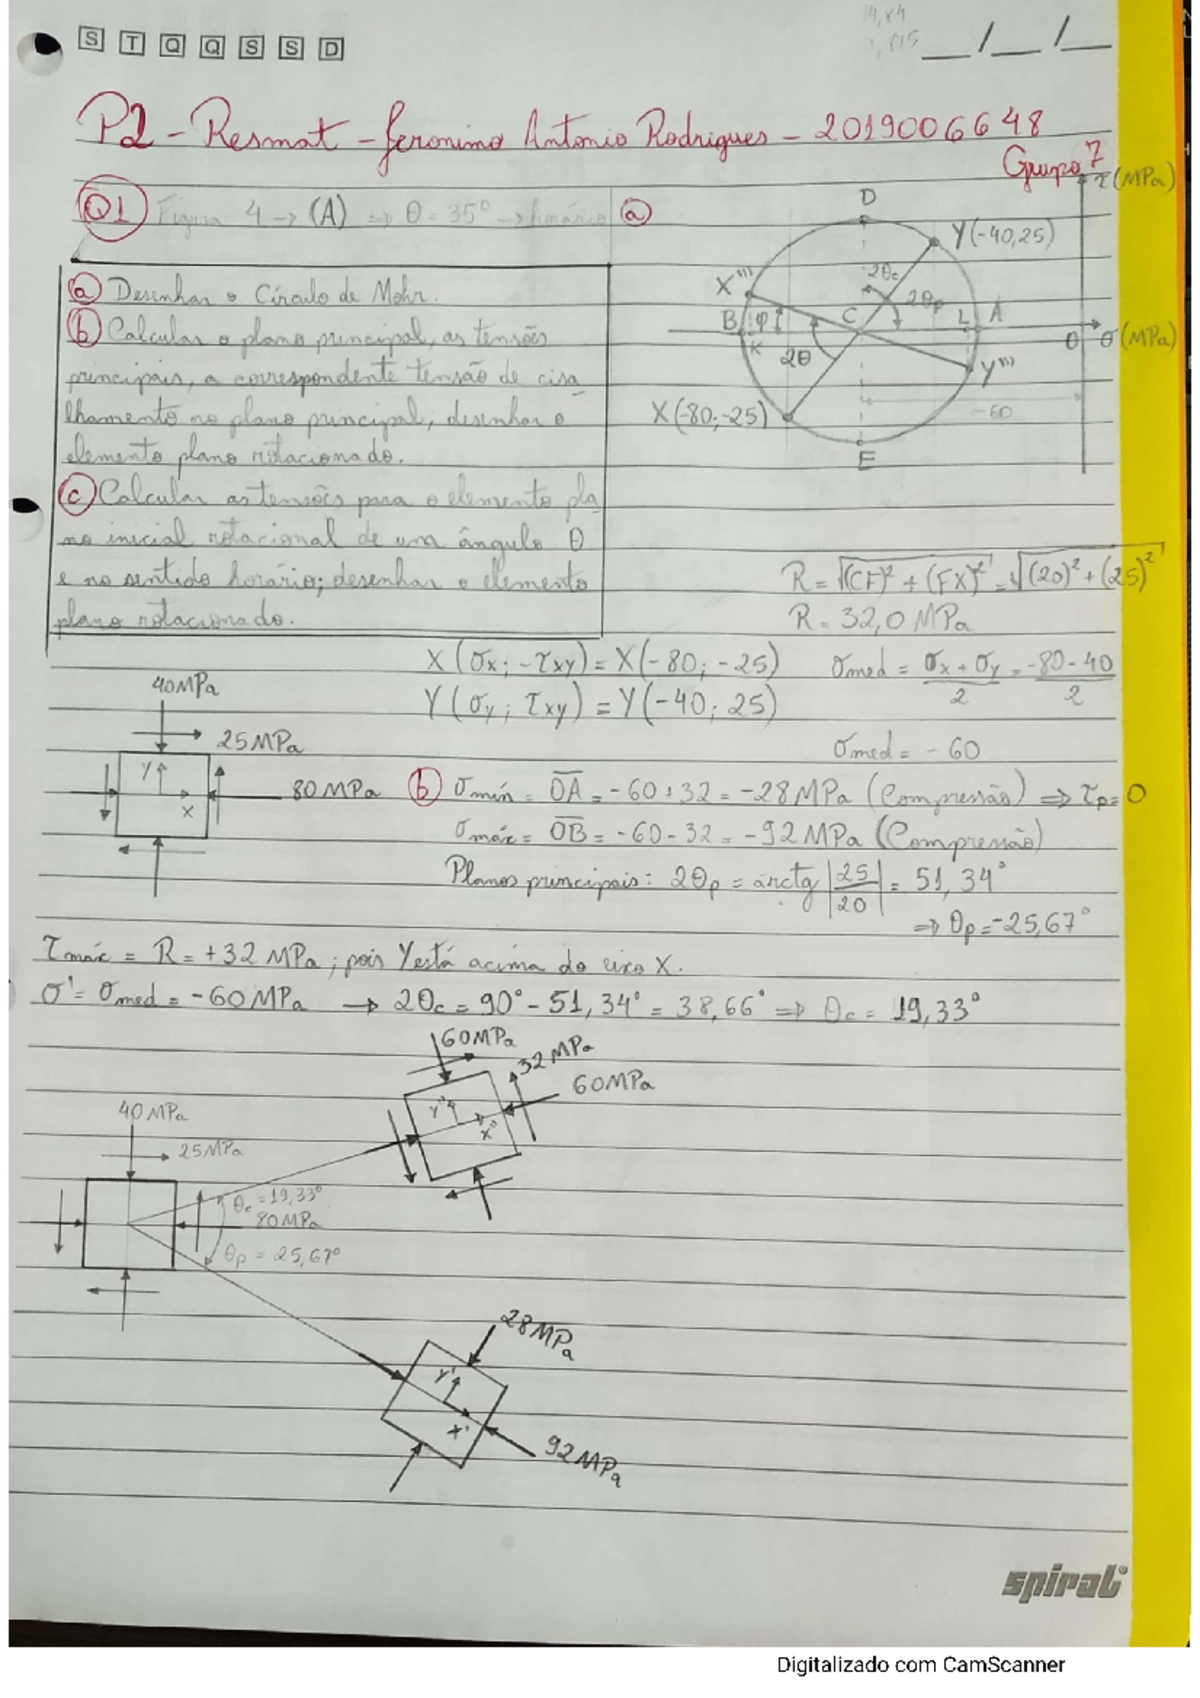 S T Q Q S S D
14,84
1,815
__/__/__
P2 - Resmat - Jeronimo Antonio Rodrigues - 2019006648
Grupo 7
Q1 Figura 4 → (A) ⇒ θ = 35° → horário
a) Desenhar o Círculo de Mohr.
b) Calcular o plano principal, as tensões
principais, a correspondente tensão de cisa
lhamento no plano principal; desenhar o
elemento plano rotacionado.
c) Calcular as tensões para o elemento pla
no inicial rotacional de um ângulo θ
e no sentido horário; desenhar o elemento
plano rotacionado.
a)
τ(MPa)
D
Y(-40,25)
X'''
2θc
2θp
B φ C L A
K
2θ
O σ(MPa)
Y'''
X(-80;-25)
-60
E
R = √(CF)² + (FX)² = √(20)² + (25)²
R = 32,0 MPa
X(σx; -τxy) = X(-80; -25)
Y(σy; τxy) = Y(-40; 25)
σmed = σx + σy / 2 = -80 - 40 / 2
σmed = -60
40MPa
25MPa
Y
X
80MPa
b) σmín = OA = -60 + 32 = -28MPa (Compressão) ⇒ τp = 0
σmáx = OB = -60 - 32 = -92MPa (Compressão)
Planos principais: 2θp = arctg |25/20| = 51,34°
⇒ θp = -25,67°
τmáx = R = +32 MPa; pois Y está acima do eixo X.
σ' = σmed = -60MPa → 2θc = 90° - 51,34° = 38,66° ⇒ θc = 19,33°
60MPa
32MPa
60MPa
Y''
X''
40MPa
25MPa
θc = 19,33°
80MPa
θp = 25,67°
28MPa
Y'
X'
92MPa
spiral
Digitalizado com CamScanner